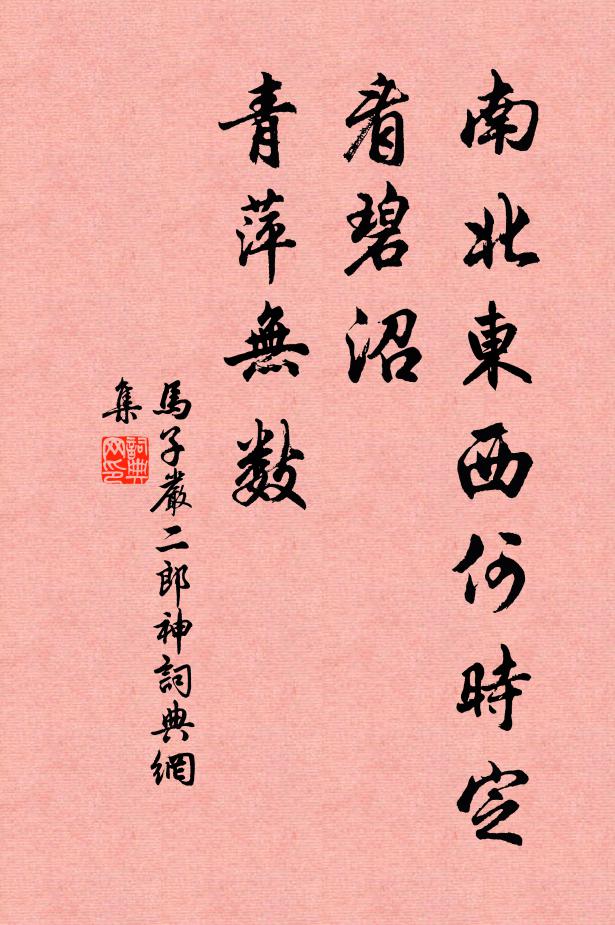 南北東西何時定
看碧沼
青萍無數
馬子嚴二郎神詞典網
集
詞典
网印